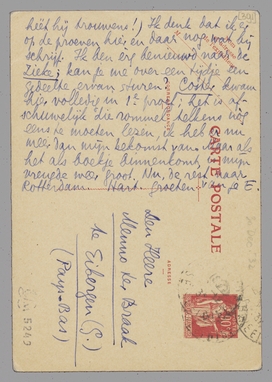 heet hij trouwens!) Ik denk dat ik ze
op de groenen hies en daar nog wat bij
schrijf. Ik ben erg benieuwd naar de
Zieke; kan je me over een tijdje een
gedeelte ervan sturen? Coster kwam
hier volledig in 1e proef; het is af-
schuwelijk die rommel telkens nog
eens te moeten lezen, ik heb er nu
wee van mijn bekomst van. Maar als
het als boekje binnenkomt is mijn
vreugde weer groot. Nu, de rest naar
Rotterdam. Hart. groeten je E.
CARTE POSTALE
ADRESSE
Den Heere
Menno ter Braak
te Eibergen (G.)
(Pays-Bas)